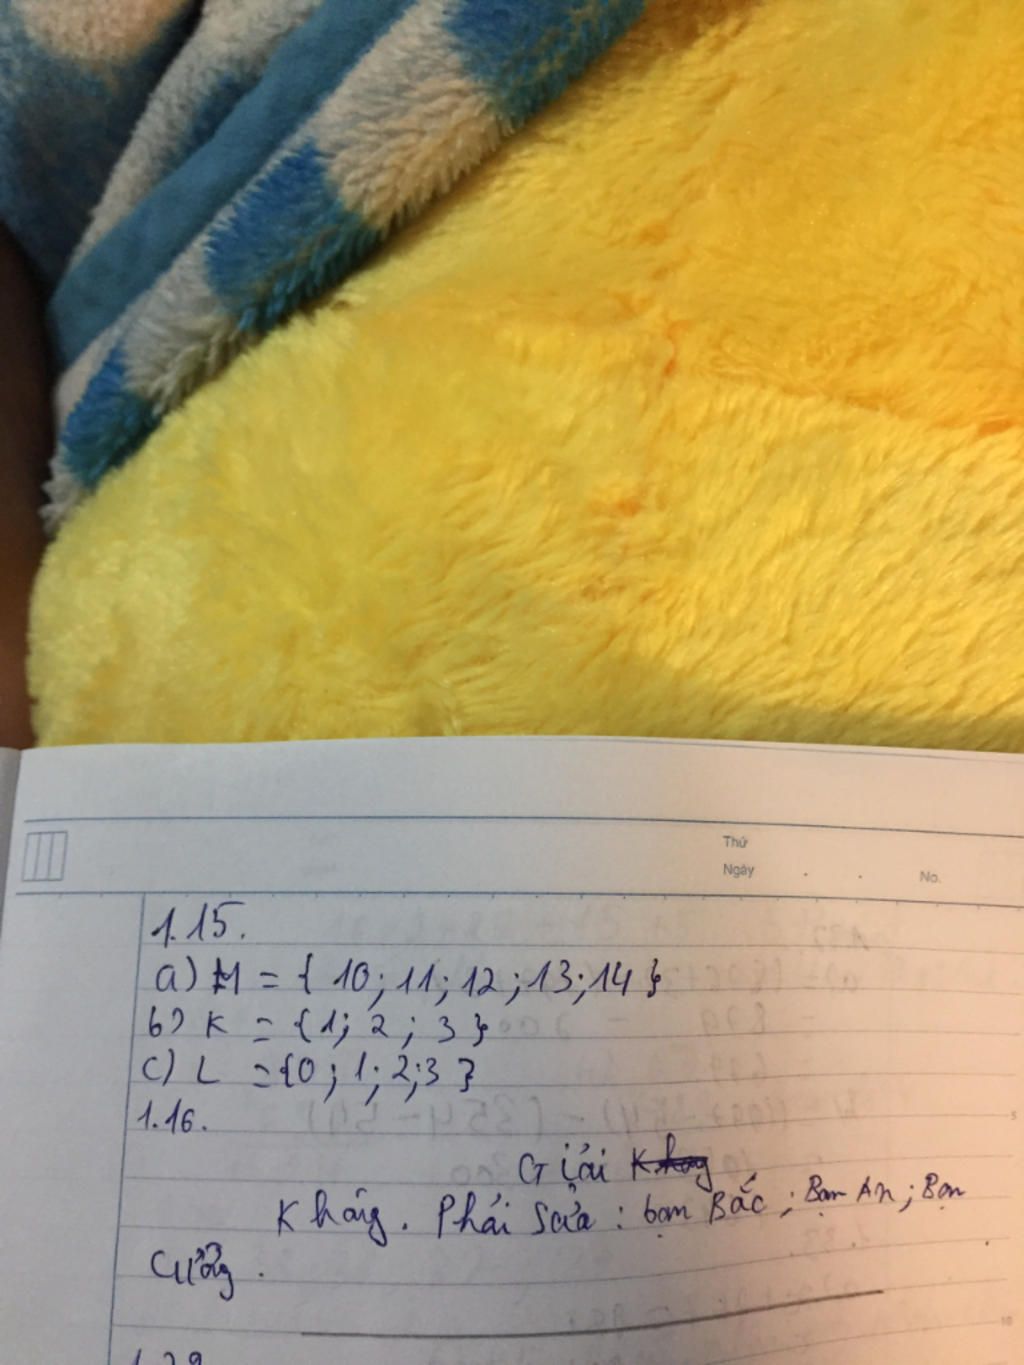 Thứ
Ngày . . No.
1.15.
a) M = { 10; 11; 12; 13; 14 }
b) K = {1; 2; 3}
c) L = {0; 1; 2; 3}
1.16.
Giải
Không. Phải Sửa: bạn Bắc; Bạn An; Bạn
Cường.